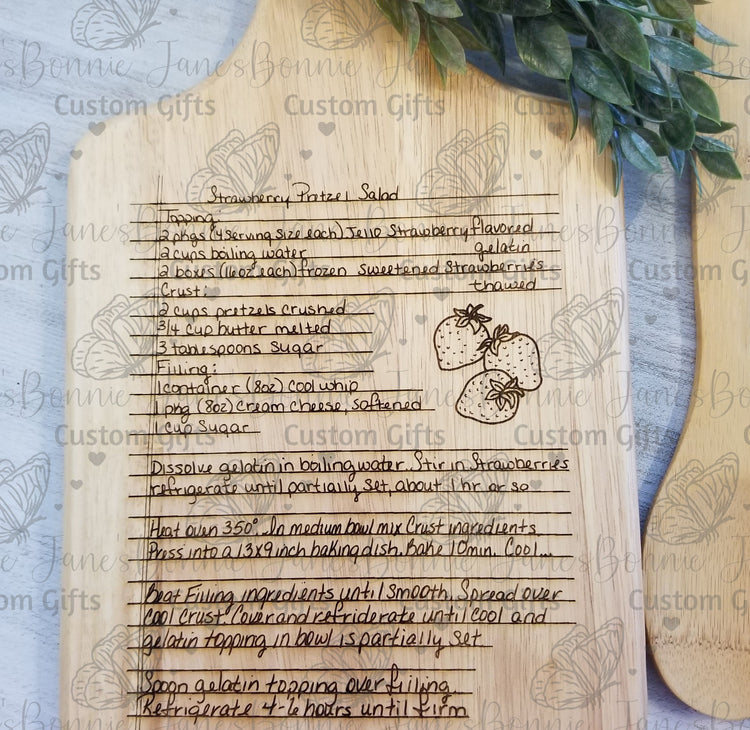 Strawberry Pretzel Salad
Topping:
2 pkgs (4 serving size each) Jello Strawberry flavored
2 cups boiling water gelatin
2 boxes (16oz each) frozen sweetened Strawberries
Crust: thawed
2 cups pretzels crushed
3/4 cup butter melted
3 tablespoons sugar
Filling:
1 container (8oz) cool whip
1 pkg (8oz) cream cheese, softened
1 cup sugar
Dissolve gelatin in boiling water. Stir in Strawberries
refrigerate until partially set, about 1 hr or so
Heat oven 350°. In medium bowl mix Crust ingredients
Press into a 13x9 inch baking dish. Bake 10 min. Cool...
Beat Filling ingredients until smooth. Spread over
cool crust. Cover and refriderate until cool and
gelatin topping in bowl is partially set
Spoon gelatin topping over filling.
Refrigerate 4-6 hours until firm
Bonnie Jane's
Custom Gifts